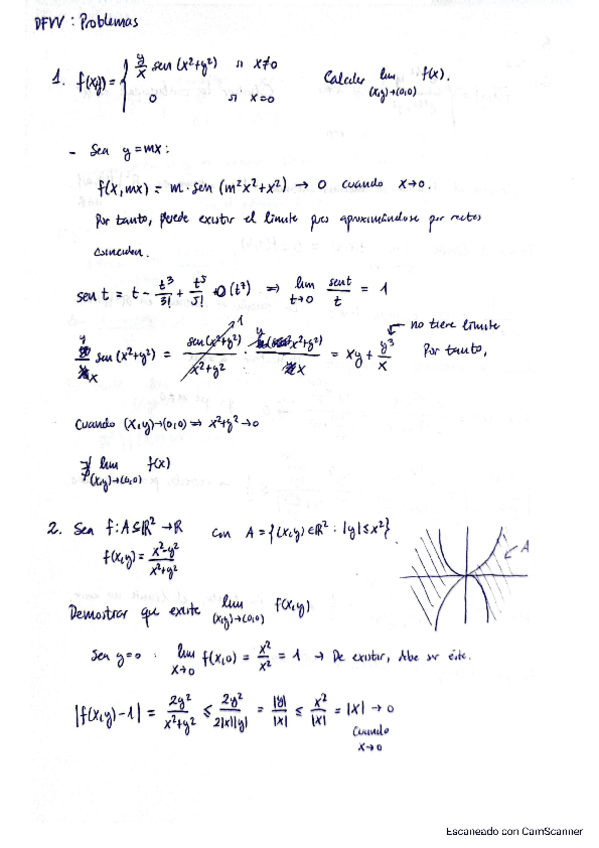 DFVV: Problemas
1. f(x,y) = { y/x sen (x²+y²) si x≠0
0 si x=0
Calcular lim (x,y)→(0,0) f(x).
- Sea y=mx:
f(x,mx) = m · sen (m²x²+x²) → 0 cuando x→0.
Por tanto, puede existir el límite pues aproximándose por rectas
coinciden.
sen t = t - t³/3! + t⁵/5! + O(t⁷) ⇒ lim t→0 sen t/t = 1
y/x sen (x²+y²) = sen(x²+y²)/x²+y² · y(x²+y²)/x = xy + y³/x ← no tiene límite
1
Por tanto,
Cuando (x,y)→(0,0) ⇒ x²+y²→0
∄ lim (x,y)→(0,0) f(x)
2. Sea f: A⊆ℝ² → ℝ con A = {(x,y)∈ℝ² : |y|≤x²}.
f(x,y) = x²-y²/x²+y²
A
Demostrar que existe lim (x,y)→(0,0) f(x,y)
Sea y=0 : lim x→0 f(x,0) = x²/x² = 1 → De existir, debe ser éste.
|f(x,y)-1| = 2y²/x²+y² ≤ 2y²/2|x||y| = |y|/|x| ≤ x²/|x| = |x| → 0
cuando
x→0
Escaneado con CamScanner